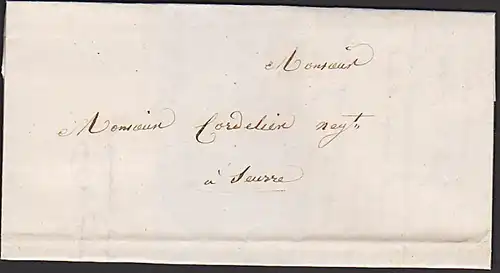 Monsieur
Monsieur Cordelier negt
à Seurre